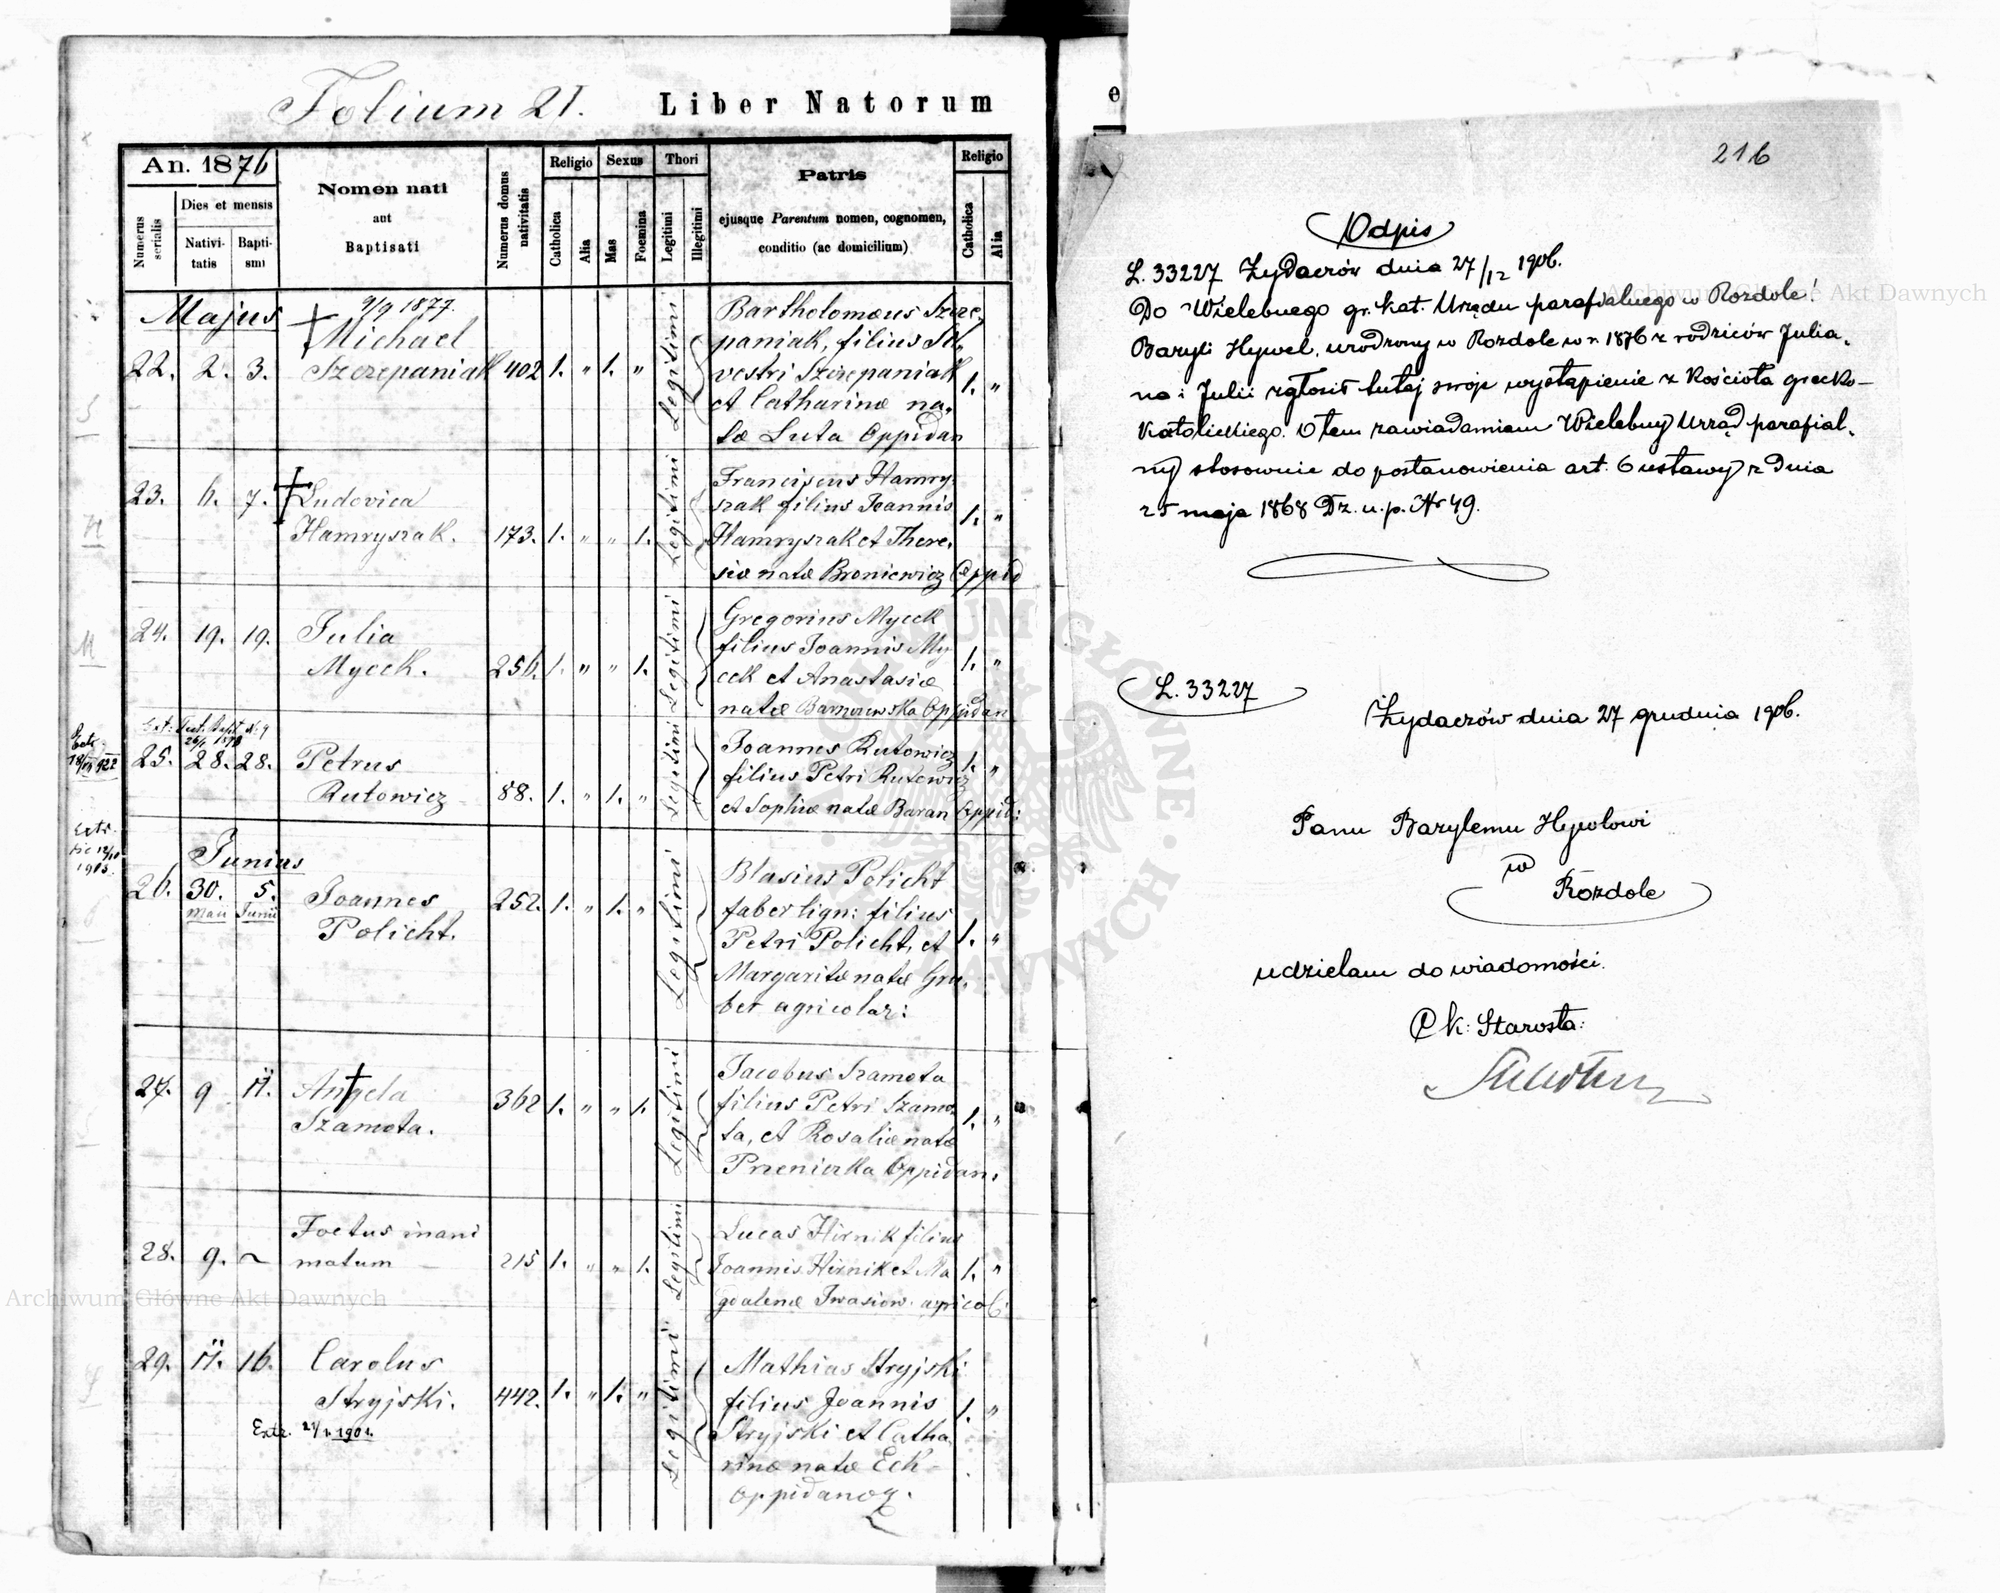 Folium 21. Liber Natorum
An. 1876
Numerus serialis
Dies et mensis
Nativitatis
Baptismi
Nomen nati
aut
Baptisati
Numerus domus nativitatis
Religio
Catholica
Alia
Sexus
Mas
Foemina
Thori
Legitimi
Illegitimi
Patris
ejusque Parentum nomen, cognomen,
conditio (ac domicilium)
Religio
Catholica
Alia
Majus
9/9 1877.
22. 2. 3. Michael
Szczepaniak 402 1. " 1. " Legitimi
Bartholomæus Szcze,
paniak, filius Sil,
vestri Szczepaniak 1. "
et Catharinæ na,
tæ Luta Oppidan
23. 6. 7. Ludovica
Hamryszak. 173. 1. " " 1. Legitimi
Franciscus Hamry,
szak filius Joannis
Hamryszak et There, 1. "
siæ natæ Broniewicz Oppid
24. 19. 19. Julia
Mycek. 256. 1. " " 1. Legitimi
Gregorius Mycek
filius Joannis My
cek et Anastasiæ 1. "
natæ Oppidan
25. 28. 28. Petrus
Rutowicz 88. 1. " 1. " Legitimi
Joannes Rutowicz
filius Petri Rutowicz 1. "
et Sophiæ natæ Baran Oppid:
Extr.
1903.
Junius
26. 30. 5. Joannes
Maii Junii
Policht. 252. 1. " 1. " Legitimi
Blasius Policht
faber lign: filius
Petri Policht, et 1. "
Margaritæ natæ Gru,
ber agricolar:
27. 9 11. Angela
Szamota. 362 1. " " 1. Legitimi
Jacobus Szamota
filius Petri Szamo,
ta, et Rosaliæ natæ 1. "
Oppidan.
28. 9. ~ Foetus inani
matum 215 1. " " 1. Legitimi
Lucas Hirnik filius
Joannis Hirnik et Ma 1. "
gdalenæ Iwasiow. agricol:
29. 11. 16. Carolus
Stryjski. 442. 1. " 1. " Legitimi
Extr. 1901.
Mathias Stryjski
filius Joannis
Stryjski et Catha, 1. "
rinæ natæ Eck-
Oppidanor.
e
216
Odpis
L. 33227 Żydaczów dnia 27/12 1906.
Do Wielebnego gr. kat. Urzędu parafialnego w Rozdole!
Bazyli Hywel, urodzony w Rozdole w r. 1876 z rodziców Julia,
na i Julii zgłosił tutaj swoje wystąpienie z Kościoła grecko-
katolickiego. O tem zawiadamiam Wielebny Urząd parafial,
ny stosownie do postanowienia art. 6 ustawy z dnia
25 maja 1868 Dz. u. p. Nr 49.
L. 33227
Żydaczów dnia 27 grudnia 1906.
Panu Bazylemu Hywlowi
w
Rozdole
udzielam do wiadomości.
C. k: Starosta:
Archiwum Główne Akt Dawnych
Archiwum Główne Akt Dawnych
ARCHIWUM GŁÓWNE AKT DAWNYCH